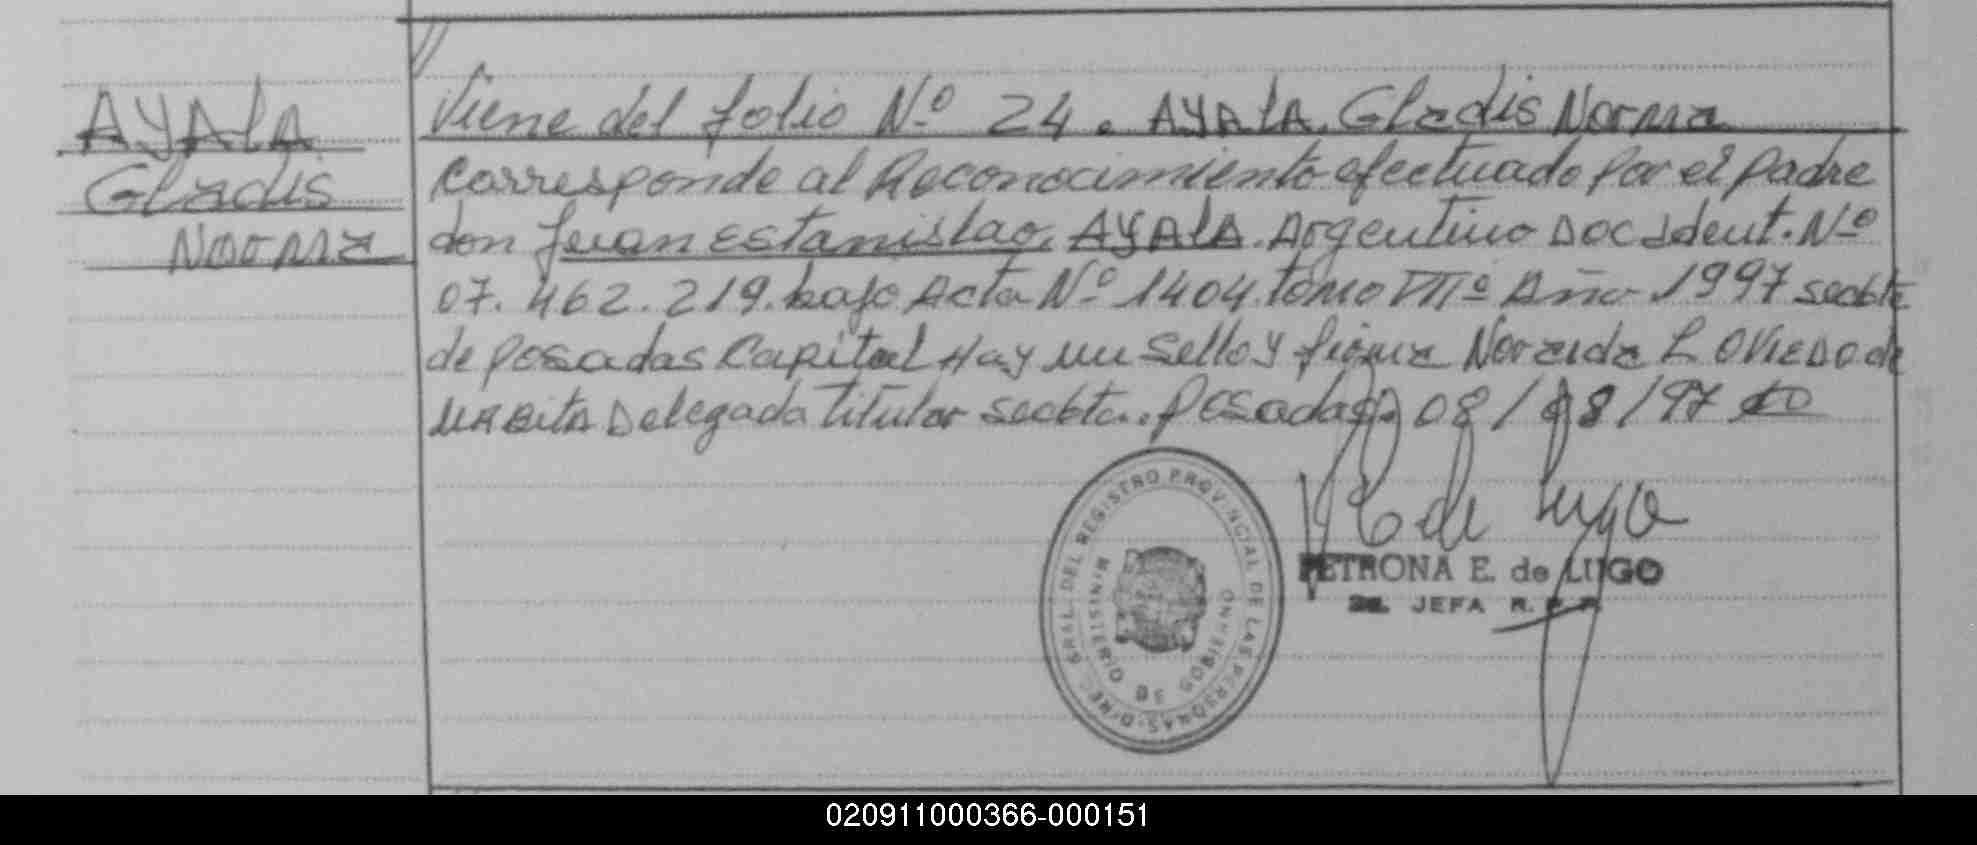 AYALA
Gladis
Norma
Viene del folio Nº 24. AYALA. Gladis Norma
Corresponde al Reconocimiento efectuado por el padre
don Juan Estanislao. AYALA. Argentino Doc Ident. Nº
07.462.219. bajo Acta Nº 1404 tomo VIIº Año 1997
de Posadas Capital Hay un sello y firma L OVIEDO de
Delegada titular. Posadas 08/08/97
DIREC. GRAL. DEL REGISTRO PROVINCIAL DE LAS PERSONAS
MINISTERIO DE GOBIERNO
P E de Lugo
PETRONA E. de LUGO
JEFA R. P. P.
020911000366-000151